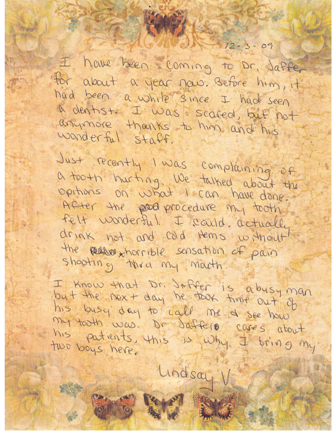 12-3-09
I have been coming to Dr. Jaffer
for about a year now. Before him, it
had been a while since I had seen
a dentist. I was scared, but not
anymore thanks to him and his
wonderful staff.
Just recently I was complaining of
a tooth hurting. We talked about the
options on what I can have done.
After the procedure my tooth
felt wonderful. I could actually
drink hot and cold items without
the horrible sensation of pain
shooting thru my mouth.
I know that Dr. Jaffer is a busy man
but the next day he took time out of
his busy day to call me & see how
my tooth was. Dr Jaffer cares about
his patients, this is why I bring my
two boys here.
Lindsay V